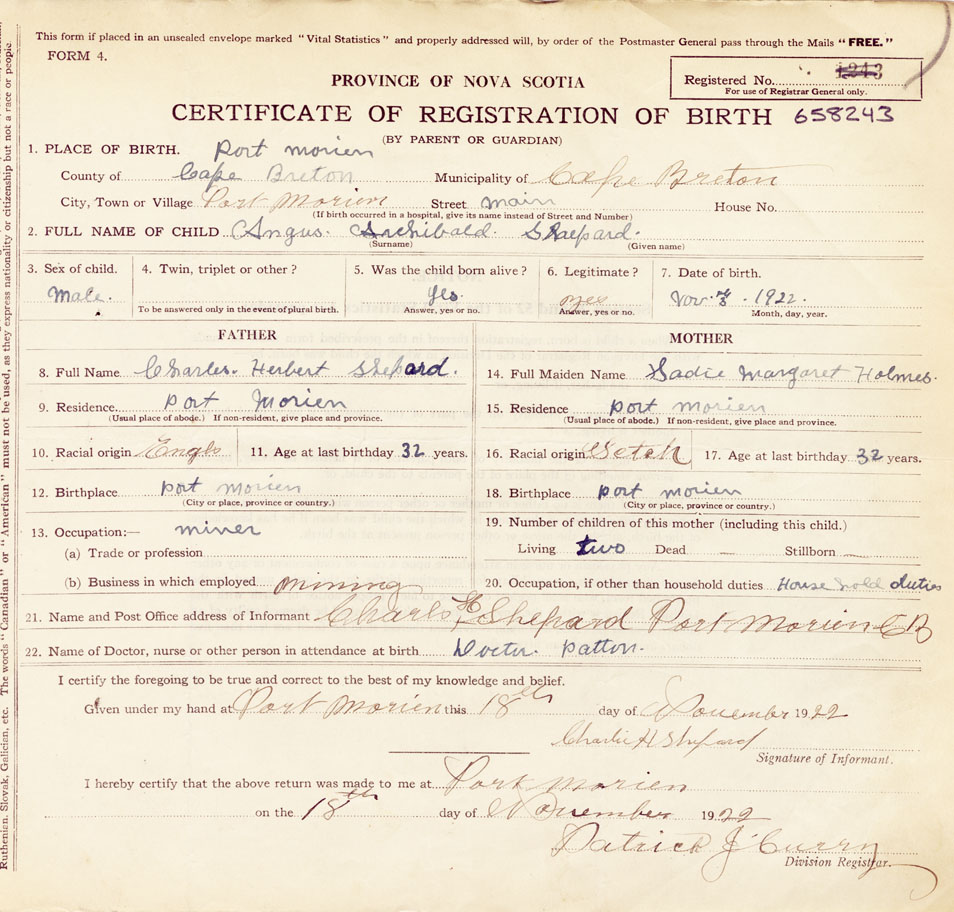 This form if placed in an unsealed envelope marked "Vital Statistics" and properly addressed will, by order of the Postmaster General pass through the Mails "FREE."
FORM 4.
PROVINCE OF NOVA SCOTIA
Registered No. 1243
For use of Registrar General only.
CERTIFICATE OF REGISTRATION OF BIRTH 658243
(BY PARENT OR GUARDIAN)
1. PLACE OF BIRTH. Port Morien
County of Cape Breton Municipality of Cape Breton
City, Town or Village Port Morien Street main House No.
(If birth occurred in a hospital, give its name instead of Street and Number)
2. FULL NAME OF CHILD Angus. Archibald. Shepard.
(Surname) (Given name)
3. Sex of child. 4. Twin, triplet or other? 5. Was the child born alive? 6. Legitimate? 7. Date of birth.
Male. yes. yes Nov. 3. 1922.
To be answered only in the event of plural birth. Answer, yes or no. Answer, yes or no. Month, day, year.
FATHER MOTHER
8. Full Name Charles. Herbert Shepard. 14. Full Maiden Name Sadie Margaret Holmes.
9. Residence Port Morien 15. Residence Port Morien
(Usual place of abode.) If non-resident, give place and province. (Usual place of abode.) If non-resident, give place and province.
10. Racial origin 11. Age at last birthday 32 years. 16. Racial origin 17. Age at last birthday 32 years.
12. Birthplace Port Morien 18. Birthplace Port Morien
(City or place, province or country.) (City or place, province or country.)
13. Occupation:— miner 19. Number of children of this mother (including this child.)
(a) Trade or profession Living two Dead — Stillborn —
(b) Business in which employed mining 20. Occupation, if other than household duties House hold duties
21. Name and Post Office address of Informant Charls H Shepard Port Morien C B
22. Name of Doctor, nurse or other person in attendance at birth Doctor. Patton.
I certify the foregoing to be true and correct to the best of my knowledge and belief.
Given under my hand at Port Morien this 18th day of November 1922
Charlie H Shepard
Signature of Informant.
I hereby certify that the above return was made to me at Port Morien
on the 18th day of November 1922
Patrick J Curry
Division Registrar.
Ruthenian, Slovak, Galician, etc. The words "Canadian" or "American" must not be used, as they express nationality or citizenship but not a race or people.